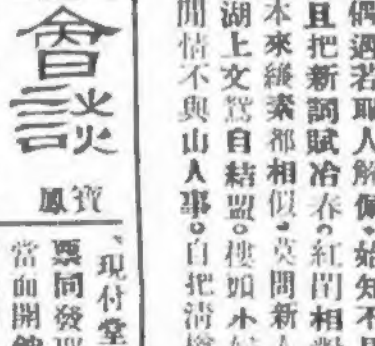 偶遇若耶人解佩。始知不
且把新詞賦冶春。紅閨相
本來縑素都相似。莫問新人
湖上文鴛自結盟。樓如小
閒情不與山人事。自把清
會談
寶鳳
現付堂
票同發
當面開